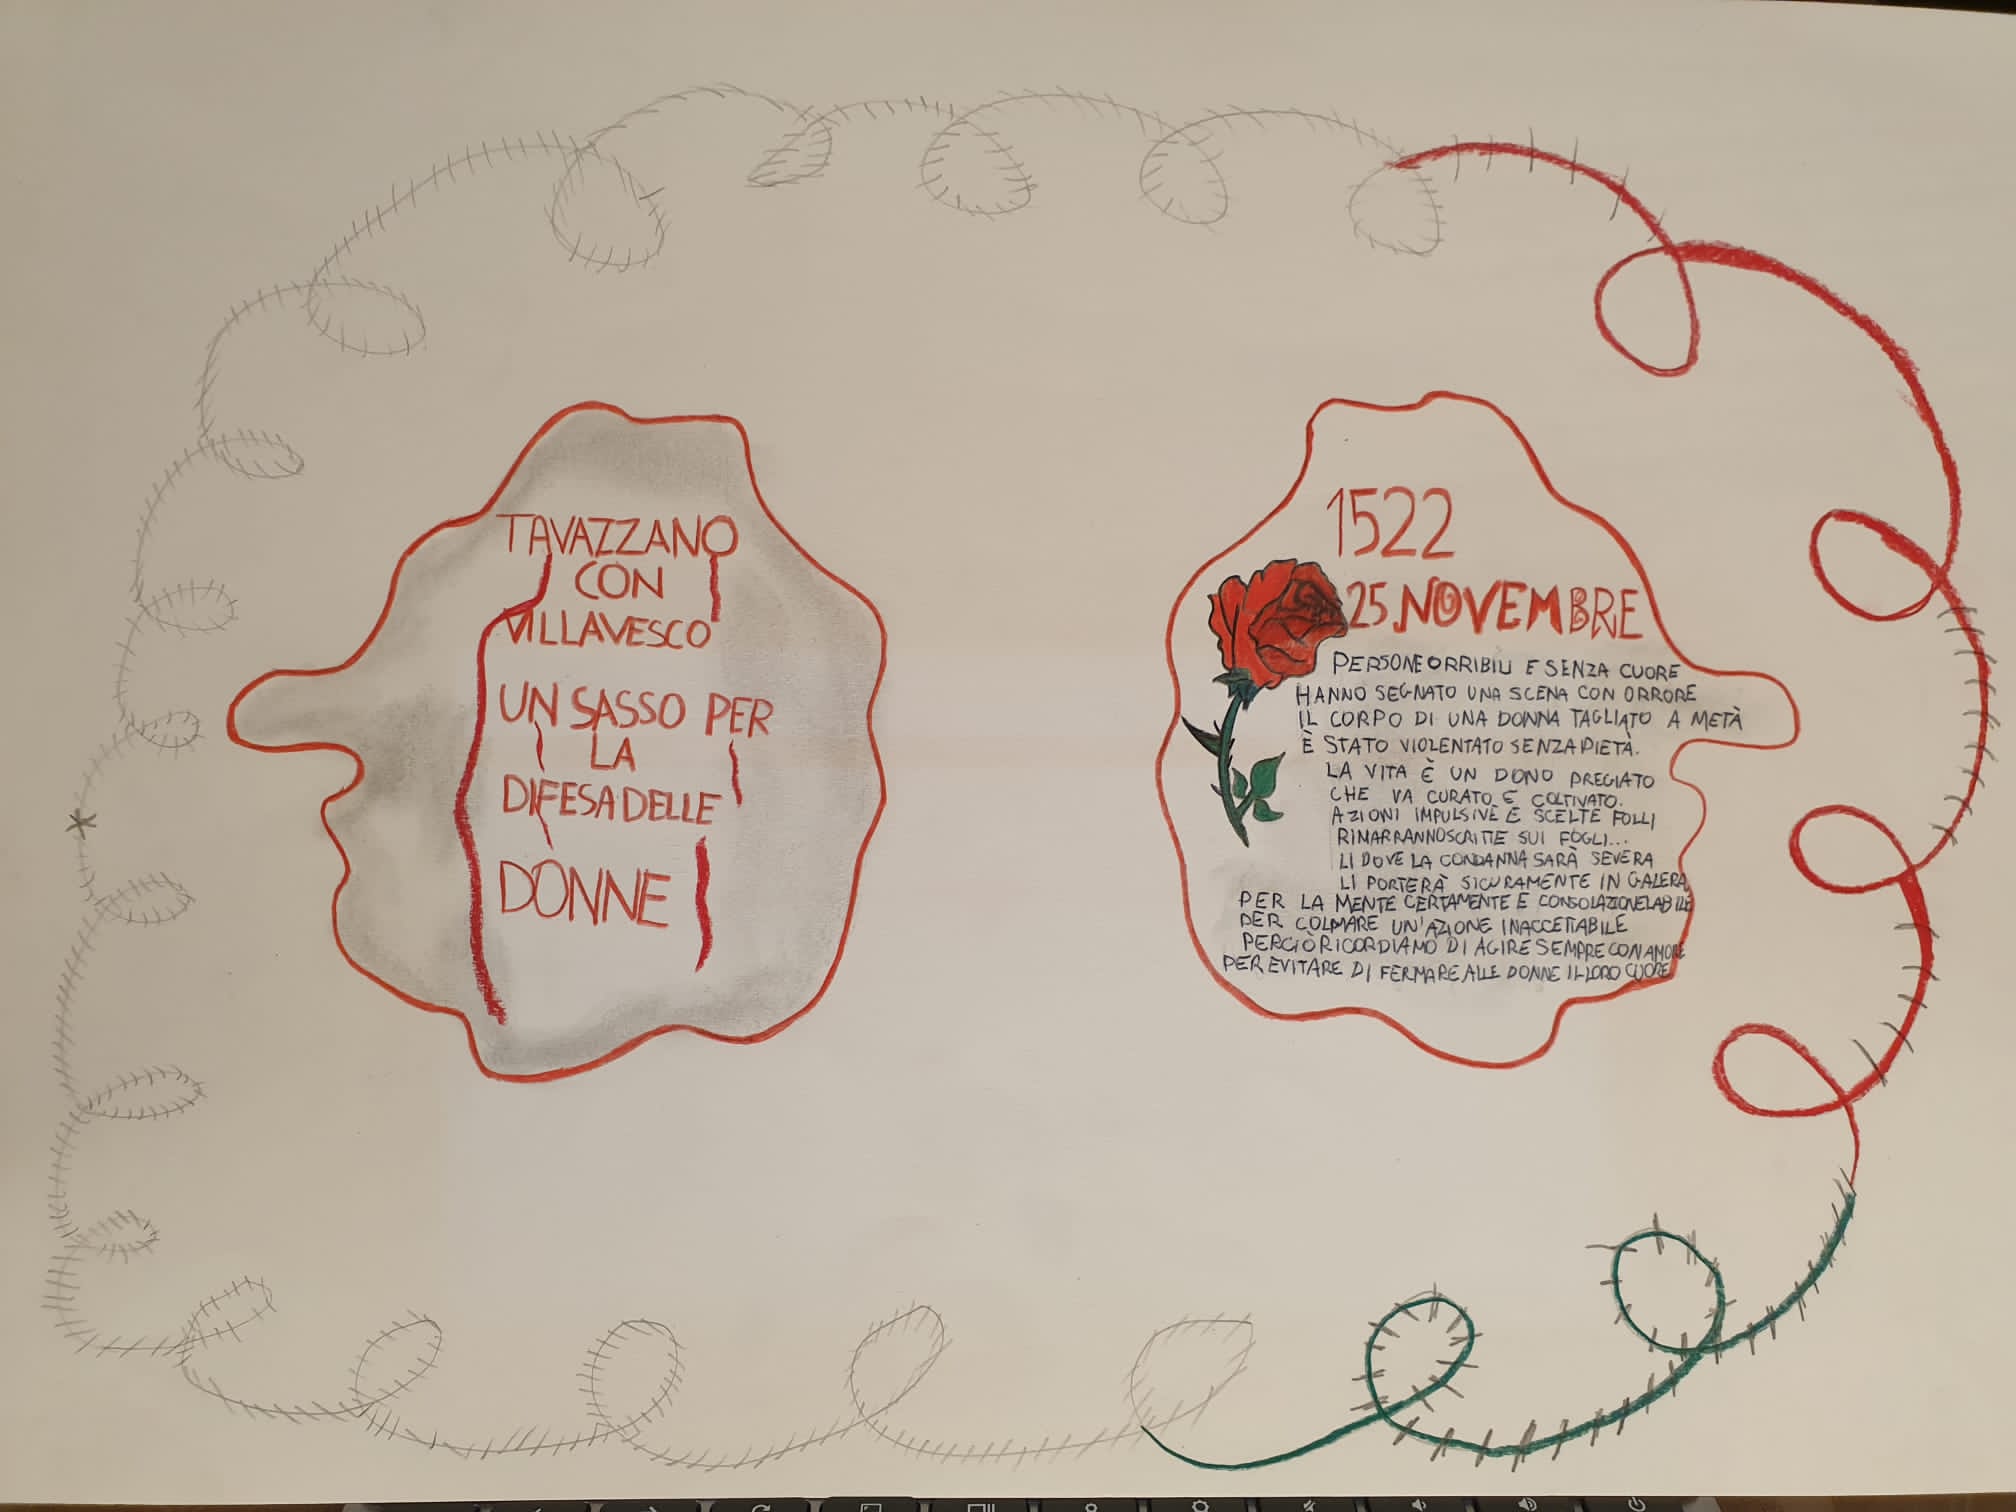 TAVAZZANO
CON
VILLAVESCO
UN SASSO PER
LA
DIFESA DELLE
DONNE
1522
25 NOVEMBRE
PERSONE ORRIBILI E SENZA CUORE
HANNO SEGNATO UNA SCENA CON ORRORE
IL CORPO DI UNA DONNA TAGLIATO A METÀ
È STATO VIOLENTATO SENZA PIETÀ.
LA VITA È UN DONO PREGIATO
CHE VA CURATO E COLTIVATO.
AZIONI IMPULSIVE E SCELTE FOLLI
RIMARRANNO SCRITTE SUI FOGLI...
LI DOVE LA CONDANNA SARÀ SEVERA
LI PORTERÀ SICURAMENTE IN GALERA
PER LA MENTE CERTAMENTE E CONSOLAZIONE LABILE
PER COLMARE UN'AZIONE INACCETTABILE
PERCIÒ RICORDIAMO DI AGIRE SEMPRE CON AMORE
PER EVITARE DI FERMARE ALLE DONNE IL LORO CUORE